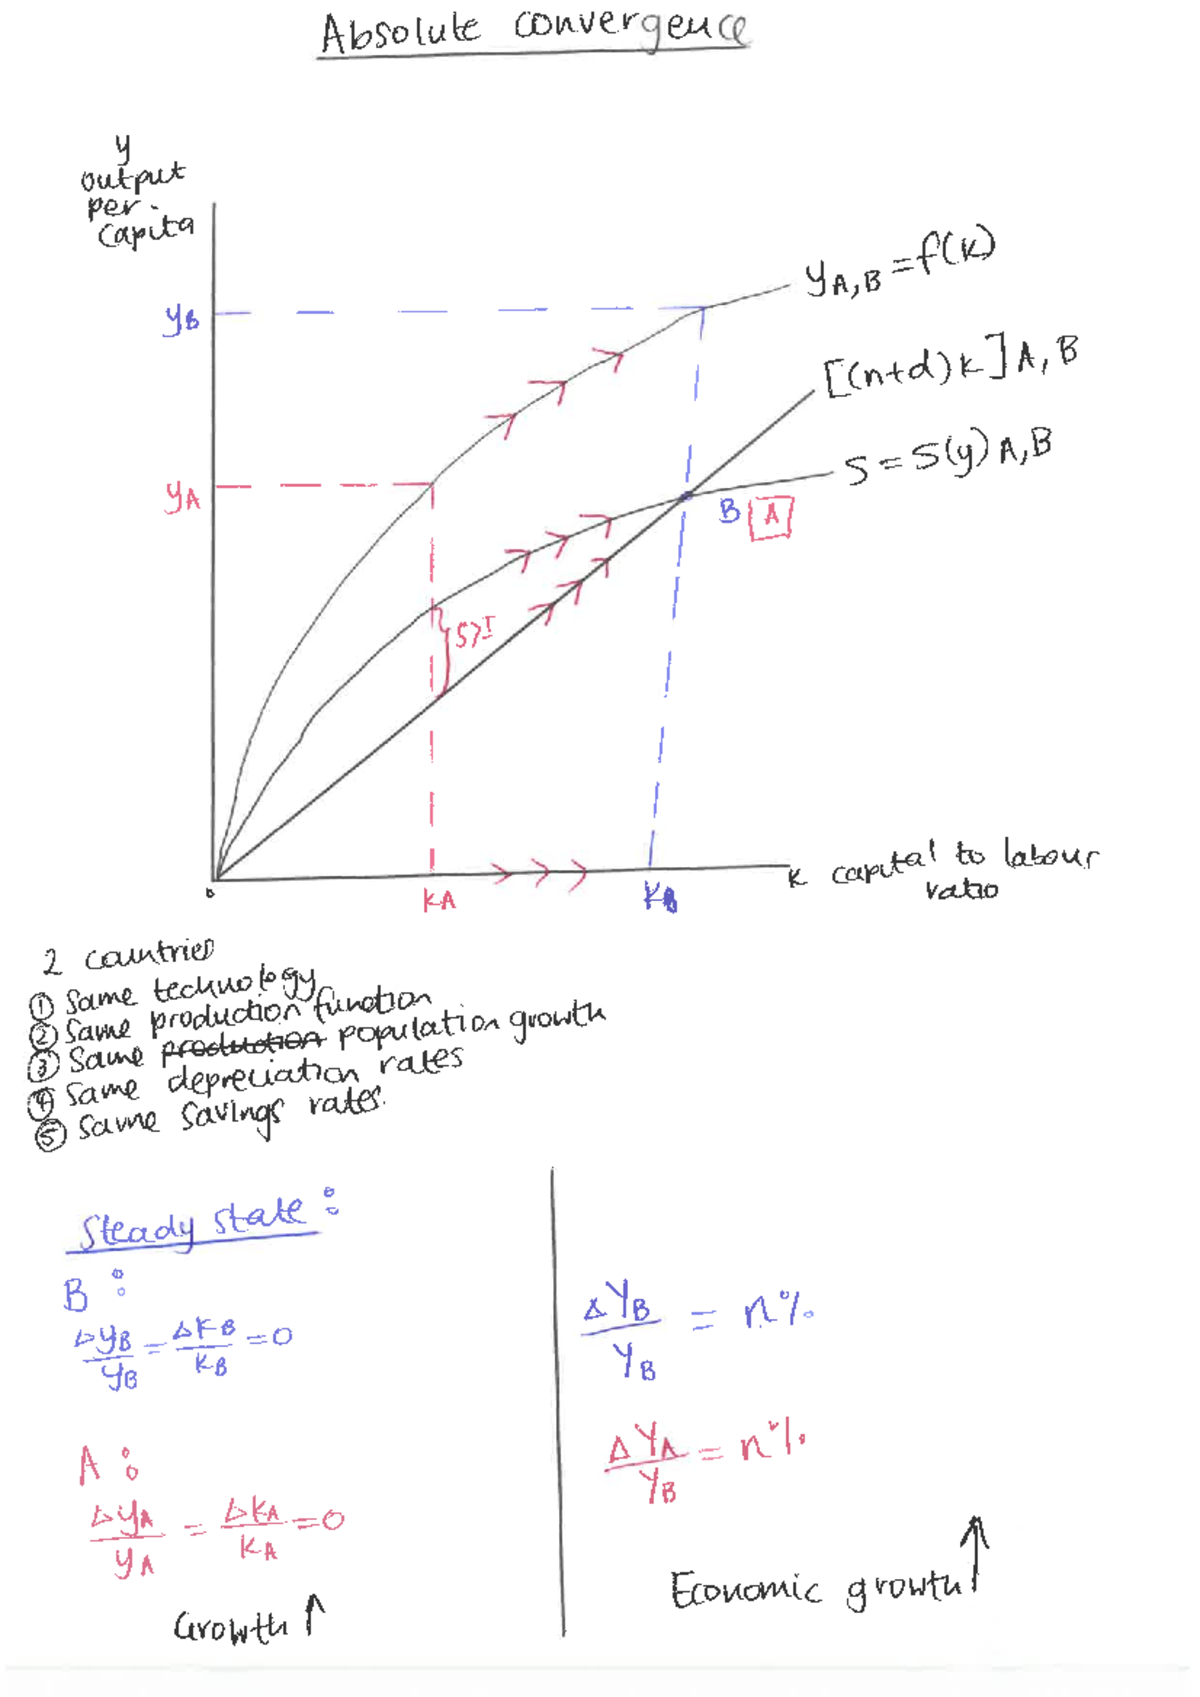 Absolute convergence
y
output
per
capita
yB
yA
yA,B = f(k)
[(n+d)k]A,B
S = S(y)A,B
B A
S>I
0
kA
kB
k capital to labour
ratio
2 countries
① Same technology
② Same production function
③ Same production population growth
④ Same depreciation rates
⑤ Same savings rates.
Steady state:
B:
ΔyB/yB = ΔkB/kB = 0
ΔYB/YB = n%
A:
ΔyA/yA = ΔkA/kA = 0
ΔYA/YB = n%
Growth ↑
Economic growth ↑